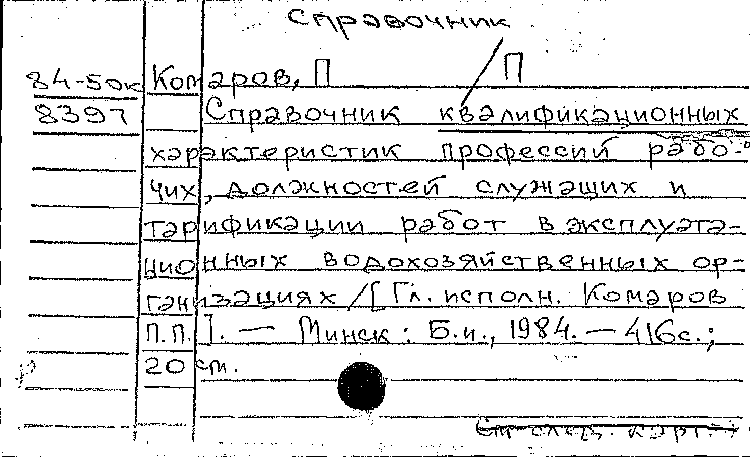 Справочник
84-50к Комаров, П П
8397 Справочник квалификационных
характеристик профессий рабо-
чих, должностей служащих и
тарификации работ в эксплуата-
ционных водохозяйственных ор-
ганизациях /[Гл. исполн. Комаров
П.П.]. — Минск: Б.и., 1984. — 416с.;
20 см.
См след. карт. →